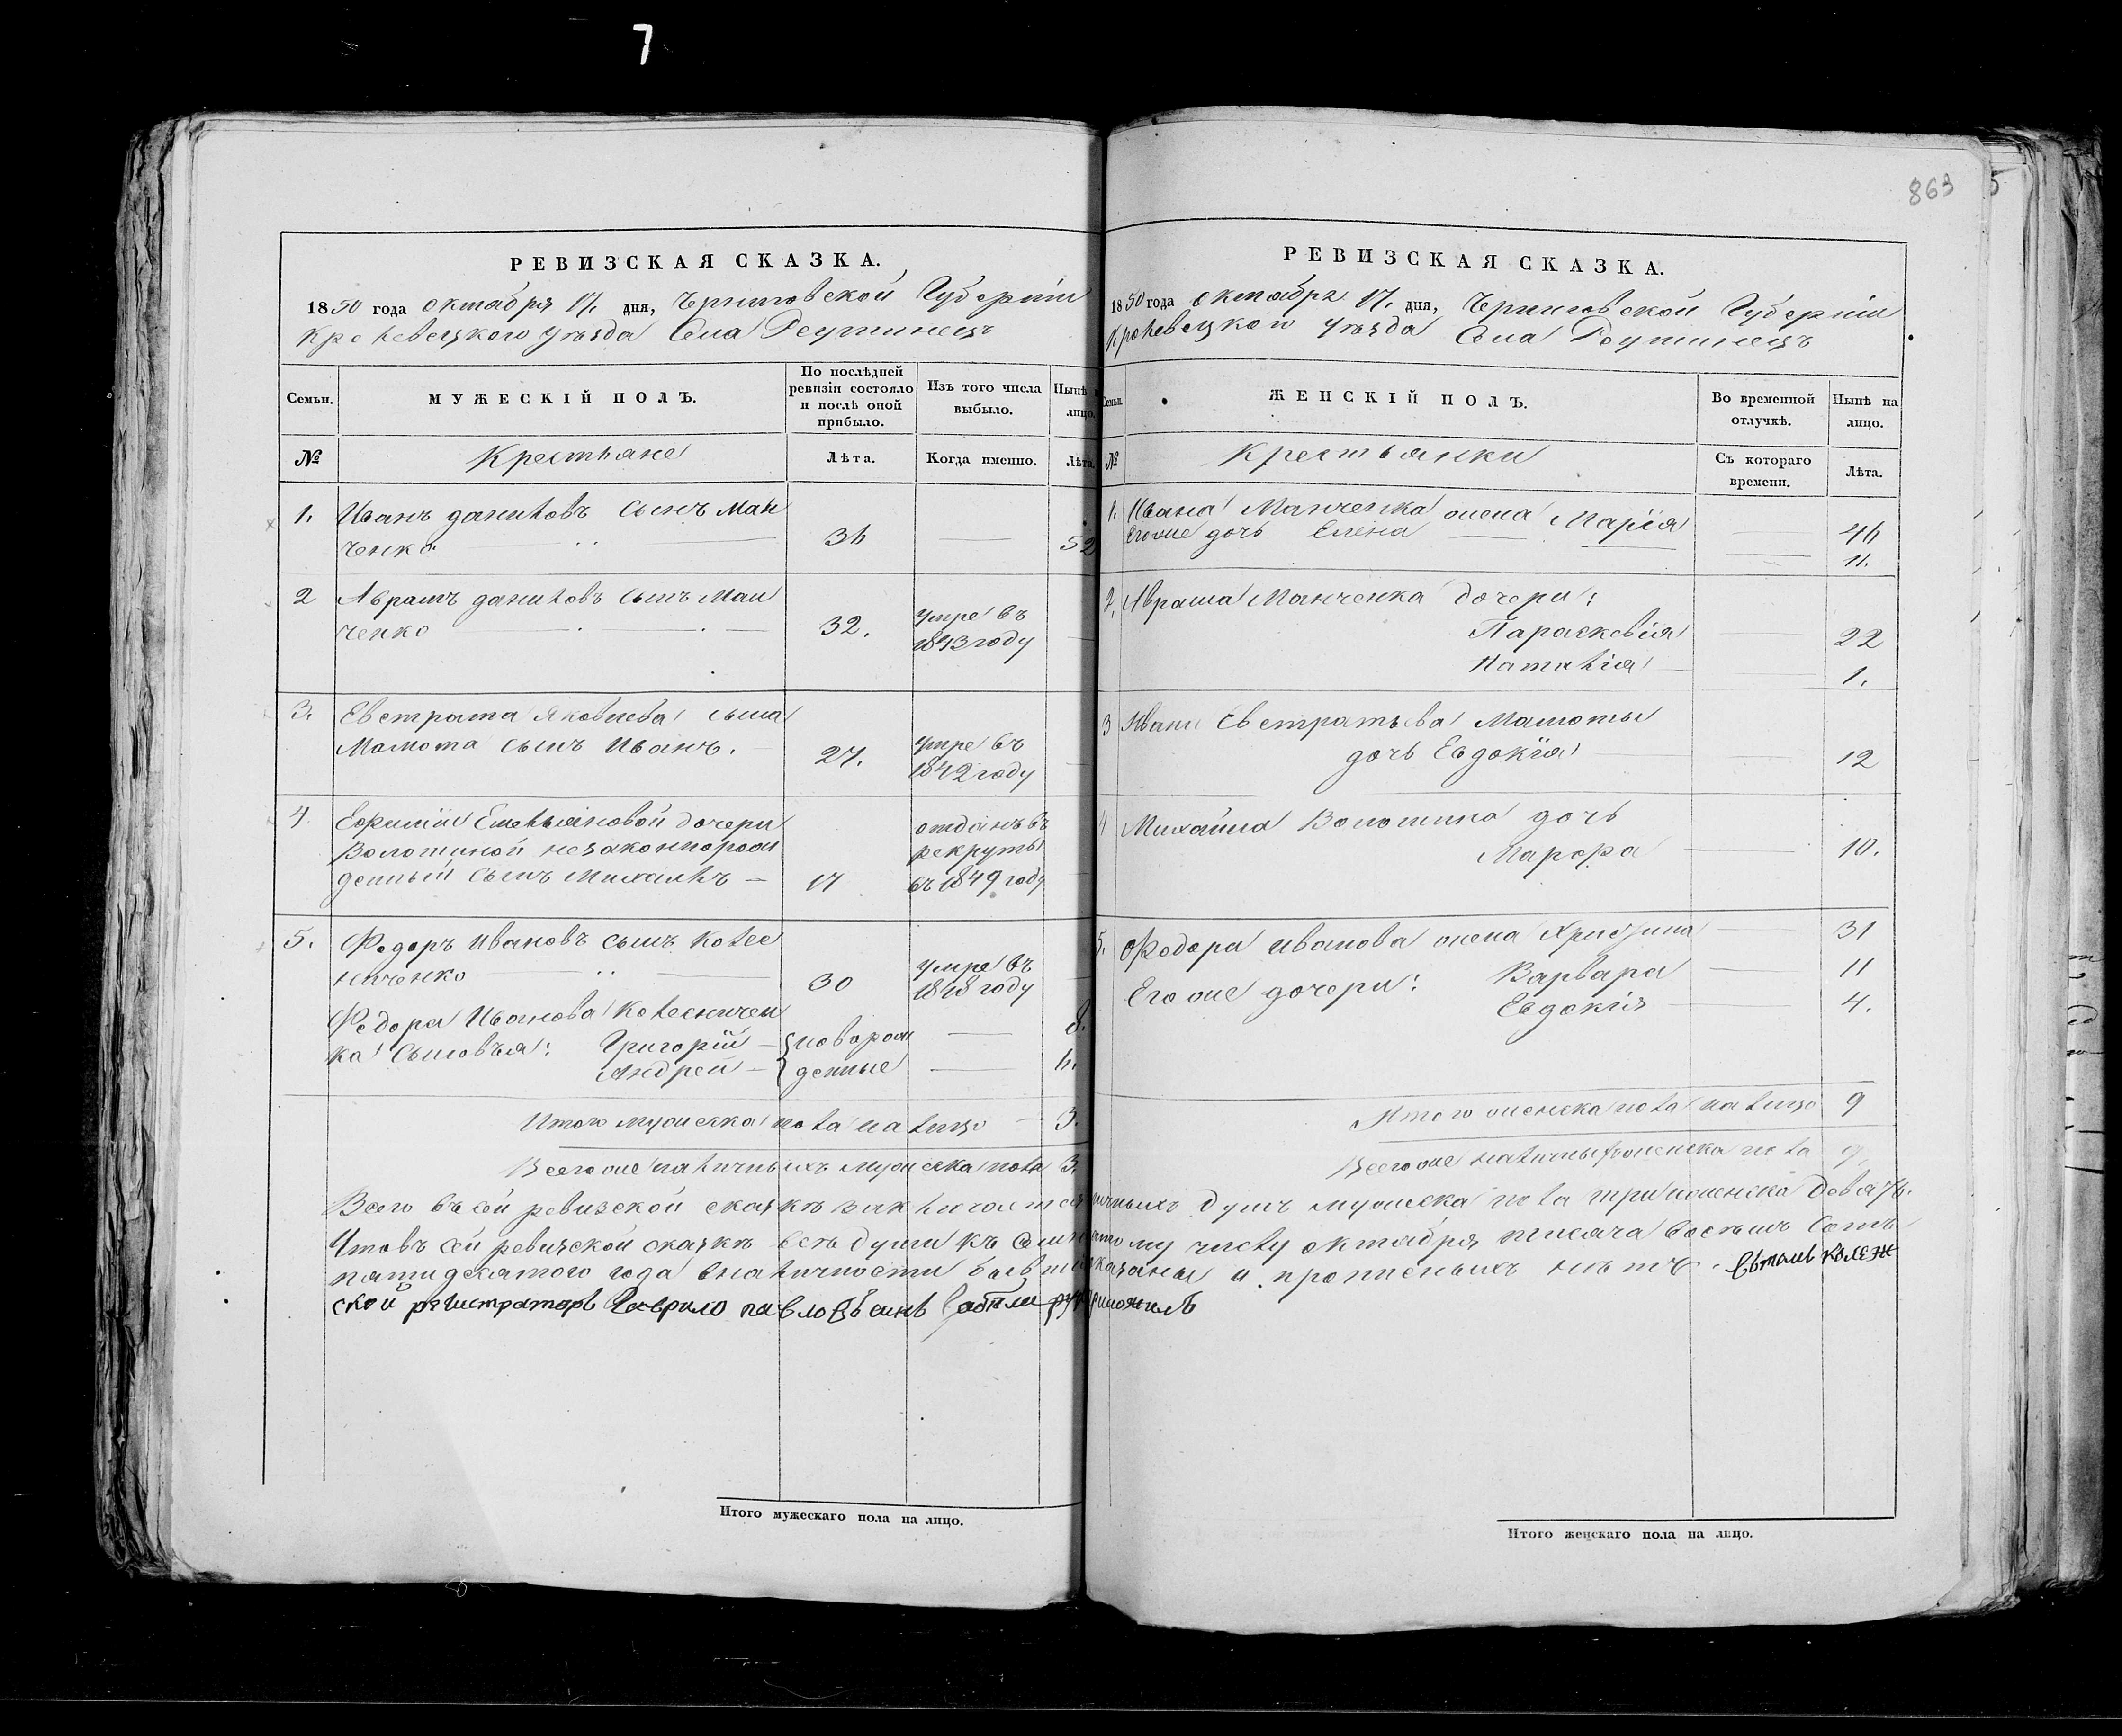 7
863
РЕВИЗСКАЯ СКАЗКА.
1850 года октября 17. дня, Черниговской Губернiи
Кролевецкого уѣзда Села Реутинецъ
Семьи.
МУЖЕСКІЙ ПОЛЪ.
По послѣдней ревизіи состояло и послѣ оной прибыло.
Изъ того числа выбыло.
Нынѣ на лицо.
№
Крестьяне
Лѣта.
Когда именно.
Лѣта.
1. Иванъ даниловъ сынъ Ман
ченко 36 52
2 Аврамъ даниловъ сынъ Ман
ченко 32. умре въ
1843 году
3. Евстрата Яковлева сына
Мамота сынъ Иванъ. 27. умре въ
1842 году
4. Ефимiи Емельяновой дочери отданъ въ
Волошиной незаконнорож рекруты
денный сынъ Михаилъ 17 въ 1849 году
5. Федоръ Ивановъ сынъ Колес
ниченко 30 умре въ
1848 году
Федора Иванова Колесничен
ка сыновья: Григорiй новорож 8.
Андрей денные 6.
Итого мужеска пола на лицо 3.
Всего же наличныхъ мужеска пола 3.
РЕВИЗСКАЯ СКАЗКА.
1850 года октября 17. дня, Черниговской Губернiи
Кролевецкого уѣзда Села Реутинецъ
Семьи.
ЖЕНСКІЙ ПОЛЪ.
Во временной отлучкѣ.
Нынѣ на лицо.
№
Крестьянки
Съ котораго времени.
Лѣта.
1. Ивана Манченка жена Марiя 46
Егоже дочь Елена 11.
2. Аврама Манченка дочери:
Параскевiя 22
Наталiя 1.
3 Ивана Евстратьева Мамоты
дочь Евдокiя 12
4 Михайла Волошина дочь
Марфа 10.
5. Федора Иванова жена Христина 31
Егоже дочери: Варвара 11
Евдокiя 4.
Итого женска пола на лицо 9
Всего же наличныхъ женска пола 9.
Всего въ сей ревизской сказкѣ заключается наличныхъ душъ мужеска пола три женска девять.
Что въ сей ревизской сказкѣ всѣ души къ семнадцатому числу октября тысяча восемъ сотъ
пятидесятого года въ наличности бывшiе показаны и прописныхъ нѣтъ. Въ томъ колеж
ской регистраторъ Гаврило павловъ сынъ руку приложилъ
Итого мужескаго пола на лицо.
Итого женскаго пола на лицо.